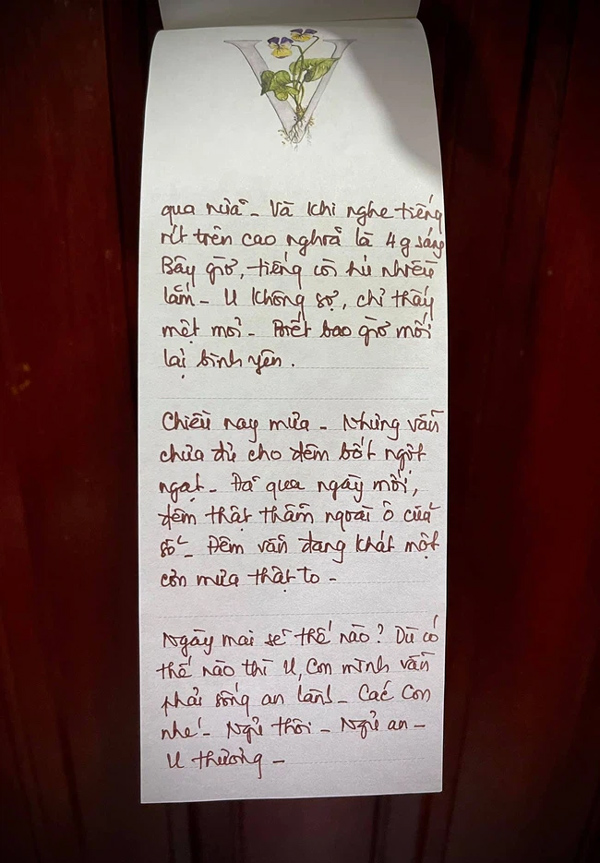 V
qua nữa - Và khi nghe tiếng
rít trên cao nghĩa là 4g sáng
Bây giờ, tiếng còi hú nhiều
lắm - U không sợ, chỉ thấy
mệt mỏi - Biết bao giờ mới
lại bình yên.
Chiều nay mưa - Nhưng vẫn
chưa đủ cho đêm bớt ngột
ngạt - Đã qua ngày mới,
đêm thật thẫm ngoài ô cửa
sổ - Đêm vẫn đang khát một
cơn mưa thật to -
Ngày mai sẽ thế nào? Dù có
thế nào thì U, con mình vẫn
phải sống an lành - Các con
nhé - Ngủ thôi - Ngủ an -
U thương -